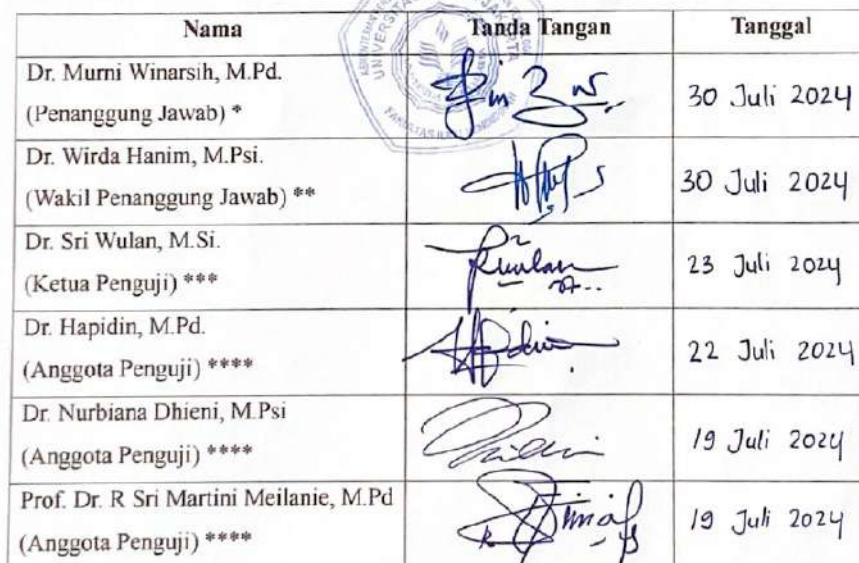 Nama Tanda Tangan Tanggal
Dr. Murni Winarsih, M.Pd.
(Penanggung Jawab) * 30 Juli 2024
Dr. Wirda Hanim, M.Psi.
(Wakil Penanggung Jawab) ** 30 Juli 2024
Dr. Sri Wulan, M.Si.
(Ketua Penguji) *** 23 Juli 2024
Dr. Hapidin, M.Pd.
(Anggota Penguji) **** 22 Juli 2024
Dr. Nurbiana Dhieni, M.Psi
(Anggota Penguji) **** 19 Juli 2024
Prof. Dr. R Sri Martini Meilanie, M.Pd
(Anggota Penguji) **** 19 Juli 2024